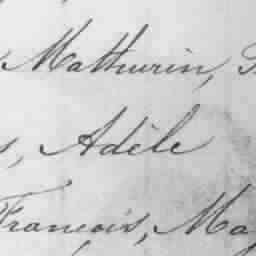 Mathurin,
Adèle
François, Ma